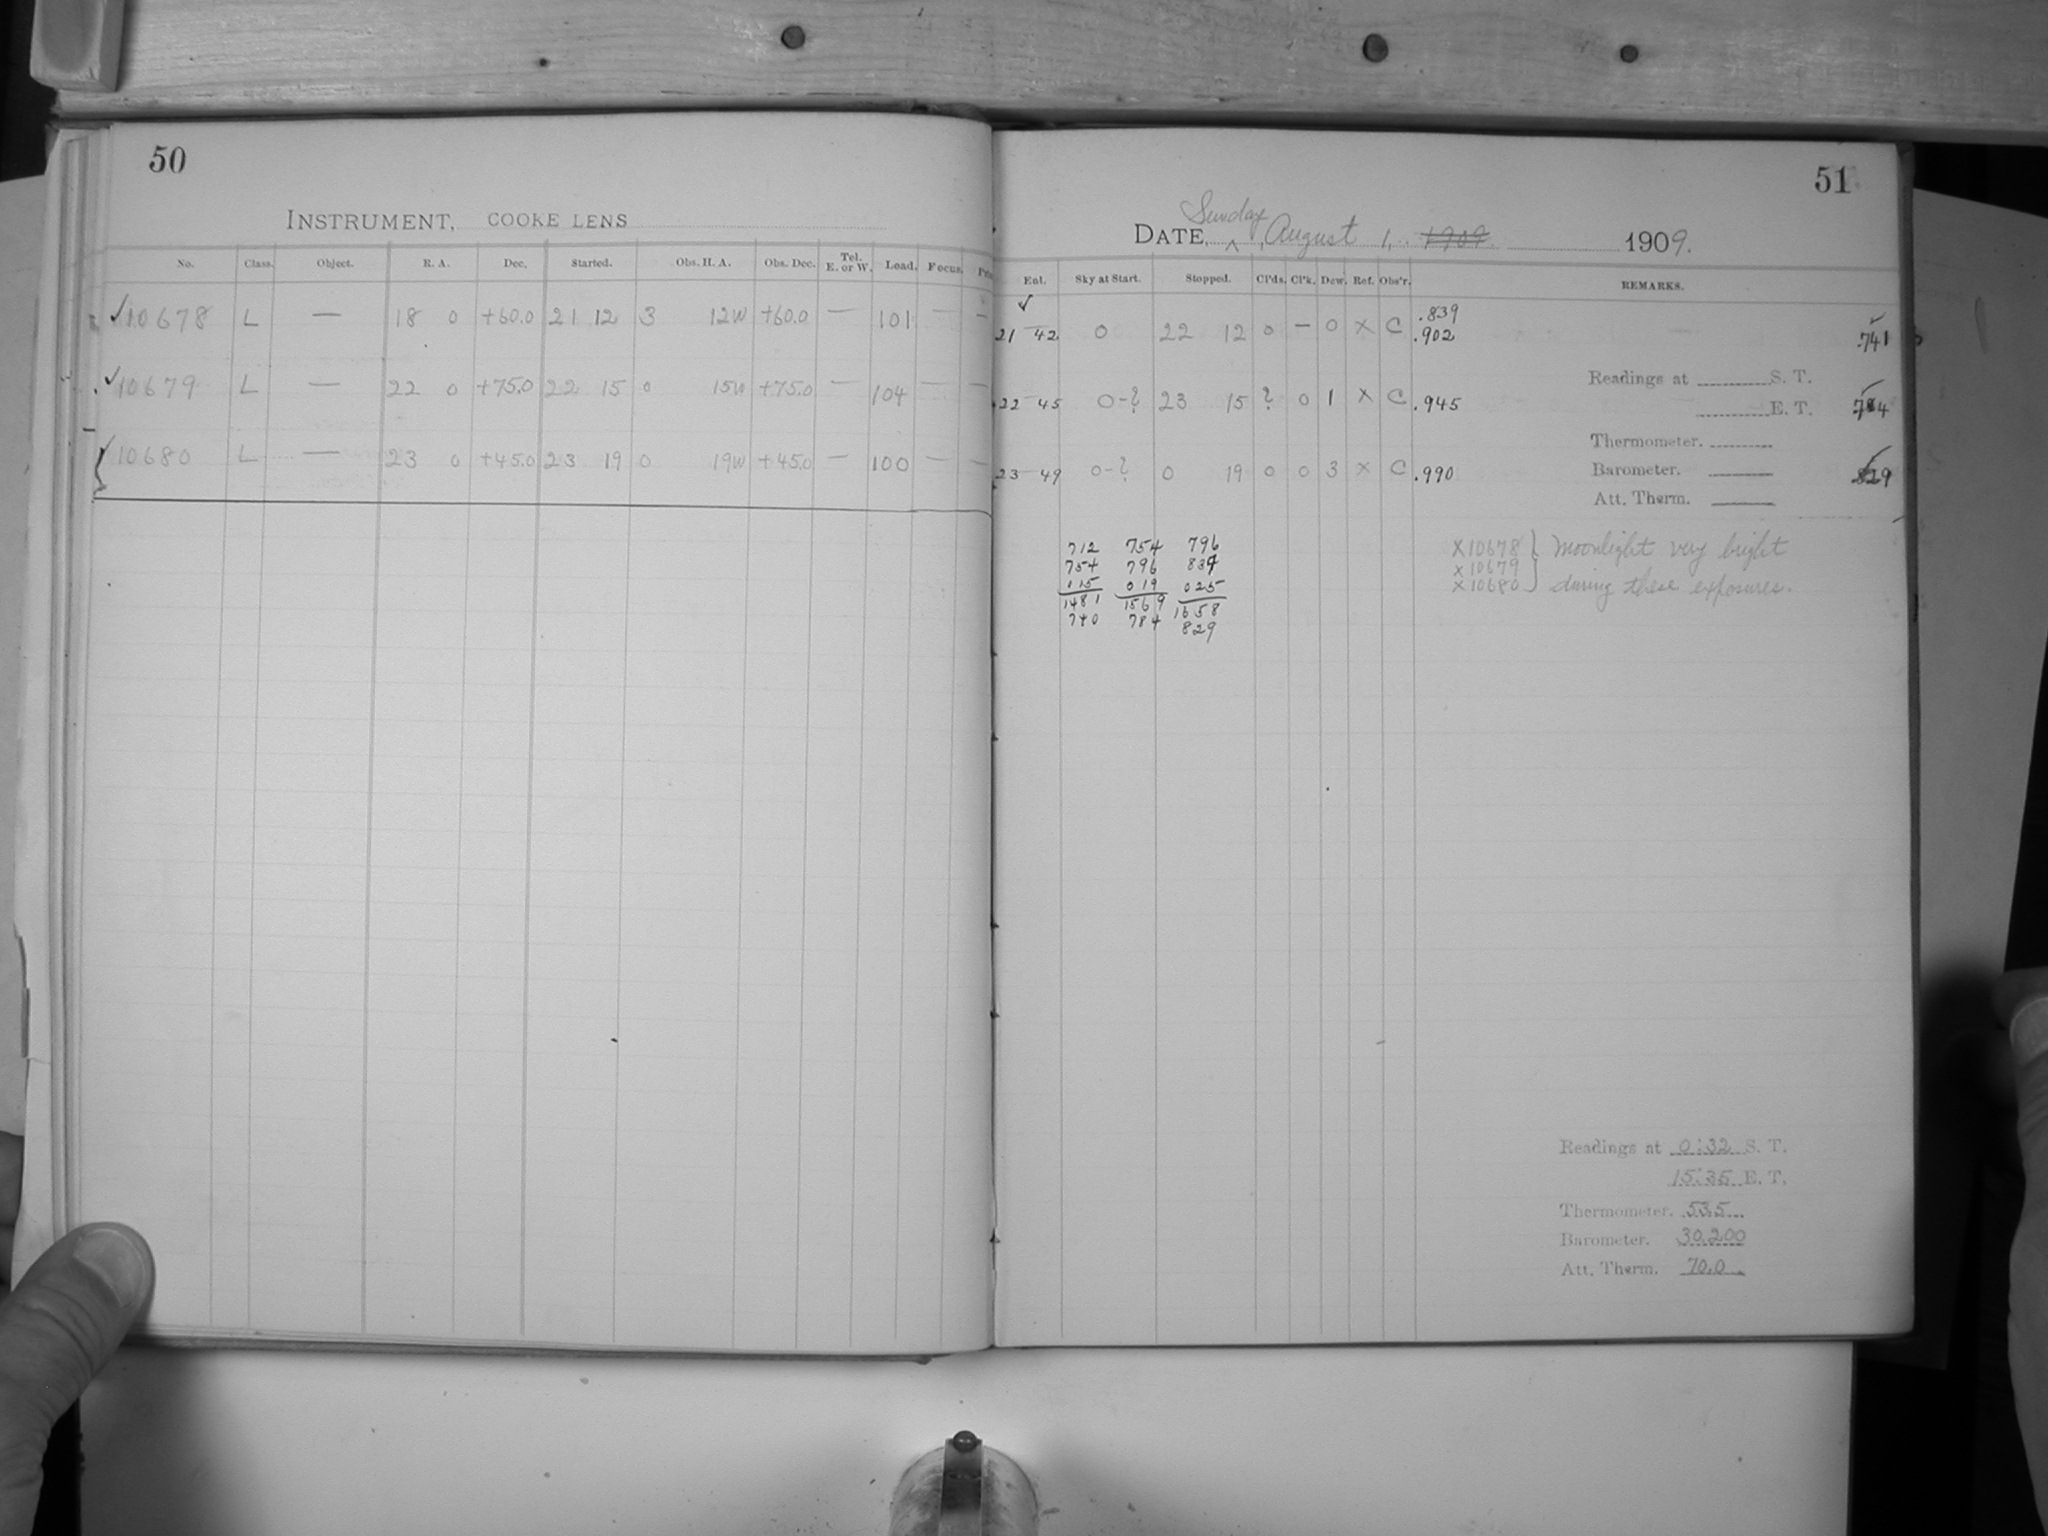 50
INSTRUMENT, COOKE LENS
No. Class. Object. R. A. Dec. Started. Obs. H. A. Obs. Dec. Tel. E. or W. Load. Focus.
✓10678 L — 18 0 +60.0 21 12 3 12W +60.0 — 101 — —
✓10679 L — 22 0 +75.0 22 15 0 15W +75.0 — 104 — —
10680 L — 23 0 +45.0 23 19 0 19W +45.0 — 100 — —
51
Sunday
DATE, ^ August 1, 1909 1909.
Ent. Sky at Start. Stopped. Cl'ds. Cl'k. Dew. Ref. Obs'r. REMARKS.
✓
.839
21 42 0 22 12 0 — 0 X C .902 .741
Readings at S. T.
22 45 0-? 23 15 ? 0 1 X C .945 E. T. .784
Thermometer.
23 49 0-? 0 19 0 0 3 X C .990 Barometer. .829
Att. Therm.
712 754 796
754 796 837
015 019 025
1481 1569 1658
740 784 829
X10678 } Moonlight very bright
X10679
X10680 } during these exposures.
Readings at 0:32 S. T.
15:35 E. T.
Thermometer. 53.5
Barometer. 30.200
Att. Therm. 70.0